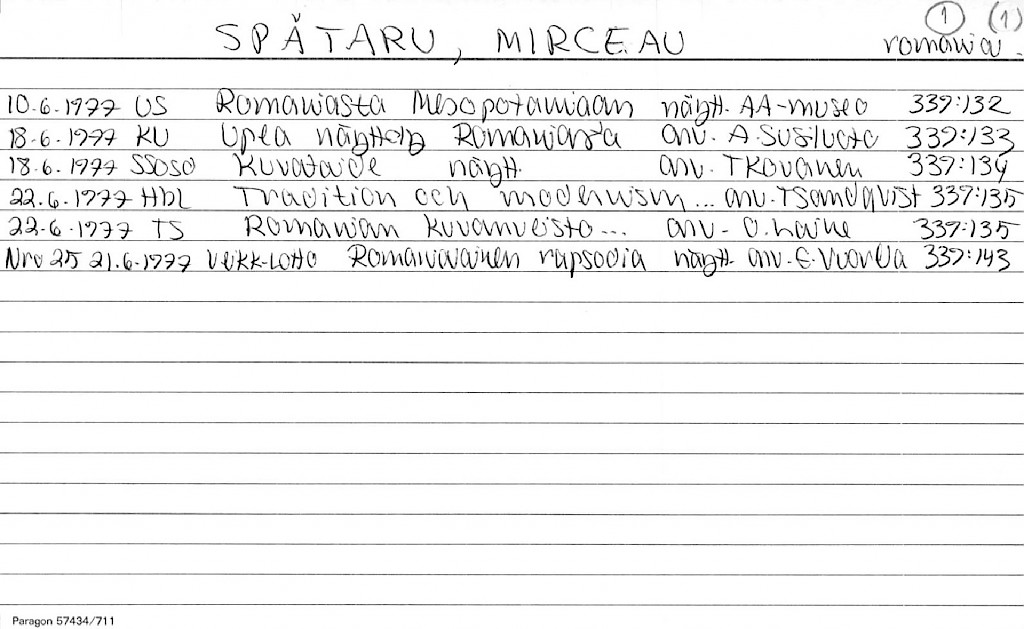 1 (1)
SPĂTARU, MIRCEAU romania.
10.6.1977 US Romaniasta Mesopotamiaan näytt. AA-museo 339:132
18.6.1977 KU Upea näyttely Romaniasta arv. A.Susiluoto 339:133
18.6.1977 SSOSD Kuvataide näytt. arv. TKovanen 339:134
22.6.1977 HBL Tradition och modernism... arv. TSandqvist 339:135
22.6.1977 TS Romanian kuvanveisto... arv. O.Laine 339:135
Nro 25 21.6.1977 Veikk-Lotto Romanialainen rapsodia näytt. arv. E.Vuorela 339:143
Paragon 57434/711